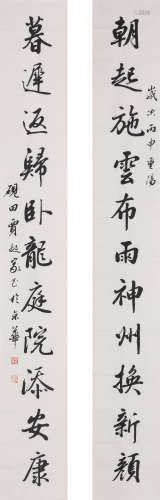 朝起施雲布雨神州換新顏
歲次丙申重陽
暮遲返歸卧龍庭院添安康
硯田賈
於京華